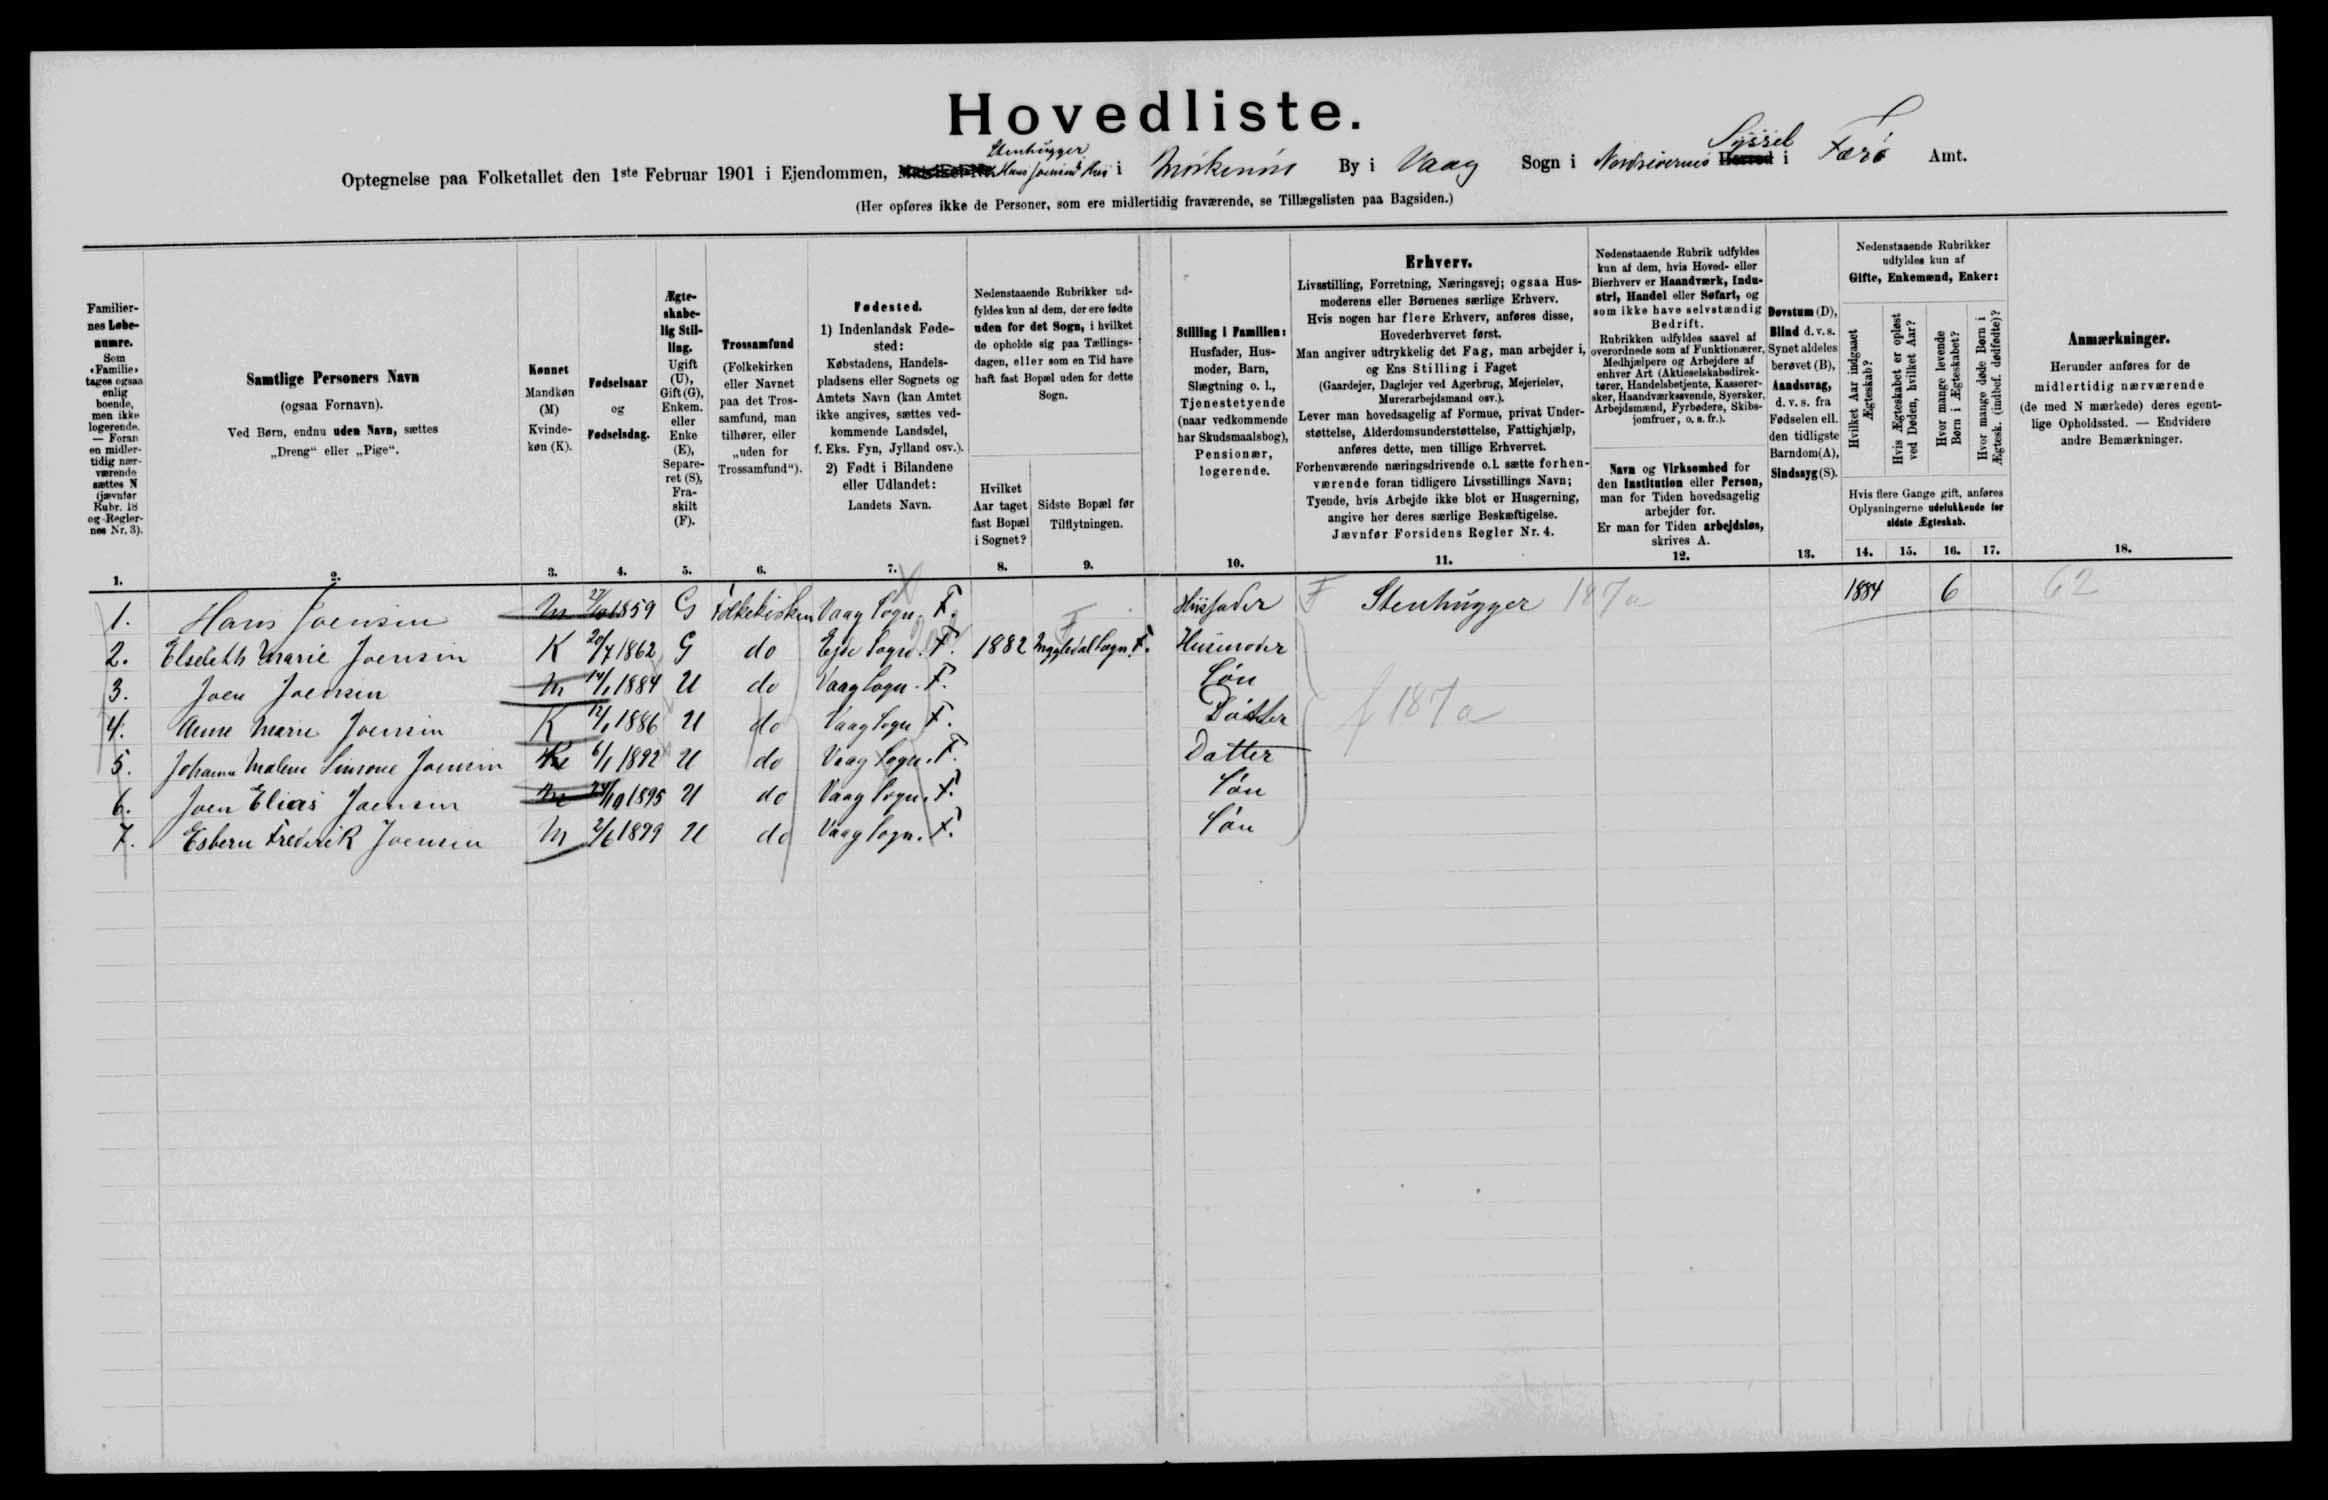 Hovedliste.
Optegnelse paa Folketallet den 1ste Februar 1901 i Ejendommen, Stenhugger Hans Joensens Hus i By i Vaag Sogn i Norderøernes Syssel i Færø Amt.
(Her opføres ikke de Personer, som ere midlertidig fraværende, se Tillægslisten paa Bagsiden.)
Familiernes Løbenumre.
Som «Familie» tages ogsaa enlig boende, men ikke logerende. — Foran en midlertidig nærværende sættes N (jævnfør Rubr. 18 og Reglernes Nr. 3).
Samtlige Personers Navn
(ogsaa Fornavn).
Ved Børn, endnu uden Navn, sættes
„Dreng“ eller „Pige“.
Kønnet
Mandkøn
(M)
Kvindekøn (K).
Fødselsaar
og
Fødselsdag.
Ægteskabelig Stilling.
Ugift (U), Gift (G), Enkem. eller Enke (E), Separeret (S), Fraskilt (F).
Trossamfund
(Folkekirken eller Navnet paa det Trossamfund, man tilhører, eller „uden for Trossamfund“).
Fødested.
1) Indenlandsk Fødested:
Købstadens, Handelspladsens eller Sognets og Amtets Navn (kan Amtet ikke angives, sættes vedkommende Landsdel, f. Eks. Fyn, Jylland osv.).
2) Født i Bilandene eller Udlandet:
Landets Navn.
Nedenstaaende Rubrikker udfyldes kun af dem, der ere fødte uden for det Sogn, i hvilket de opholde sig paa Tællingsdagen, eller som en Tid have haft fast Bopæl uden for dette Sogn.
Hvilket Aar taget fast Bopæl i Sognet?
Sidste Bopæl før Tilflytningen.
Stilling i Familien:
Husfader, Husmoder, Barn, Slægtning o. l., Tjenestetyende (naar vedkommende har Skudsmaalsbog), Pensionær, logerende.
Erhverv.
Livsstilling, Forretning, Næringsvej; ogsaa Husmoderens eller Børnenes særlige Erhverv.
Hvis nogen har flere Erhverv, anføres disse, Hovederhvervet først.
Man angiver udtrykkelig det Fag, man arbejder i, og Ens Stilling i Faget
(Gaardejer, Daglejer ved Agerbrug, Mejerielev, Murerarbejdsmand osv.).
Lever man hovedsagelig af Formue, privat Understøttelse, Alderdomsunderstøttelse, Fattighjælp, anføres dette, men tillige Erhvervet.
Forhenværende næringsdrivende o.l. sætte forhenværende foran tidligere Livsstillings Navn; Tyende, hvis Arbejde ikke blot er Husgerning, angive her deres særlige Beskæftigelse.
Jævnfør Forsidens Regler Nr. 4.
Nedenstaaende Rubrik udfyldes kun af dem, hvis Hoved- eller Bierhverv er Haandværk, Industri, Handel eller Søfart, og som ikke have selvstændig Bedrift.
Rubrikken udfyldes saavel af overordnede som af Funktionærer, Medhjælpere og Arbejdere af enhver Art (Aktieselskabsdirektører, Handelsbetjente, Kasserersker, Haandværkssvende, Syersker, Arbejdsmænd, Fyrbødere, Skibsjomfruer, o. s. fr.).
Navn og Virksomhed for den Institution eller Person, man for Tiden hovedsagelig arbejder for.
Er man for Tiden arbejdsløs, skrives A.
Døvstum (D), Blind d. v. s. Synet aldeles berøvet (B), Aandssvag, d. v. s. fra Fødselen ell. den tidligste Barndom (A), Sindssyg (S).
Nedenstaaende Rubrikker udfyldes kun af Gifte, Enkemænd, Enker:
Hvilket Aar indgaaet Ægteskab?
Hvis Ægteskabet er opløst ved Døden, hvilket Aar?
Hvor mange levende Børn i Ægteskabet?
Hvor mange døde Børn i Ægtesk. (indbef. dødfødte)?
Hvis flere Gange gift, anføres Oplysningerne udelukkende for sidste Ægteskab.
Anmærkninger.
Herunder anføres for de midlertidig nærværende (de med N mærkede) deres egentlige Opholdssted. — Endvidere andre Bemærkninger.
1. 2. 3. 4. 5. 6. 7. 8. 9. 10. 11. 12. 13. 14. 15. 16. 17. 18.
1. Hans Joensen M 27/10 1859 G Folkekirken Vaag Sogn. F. Husfader F Stenhugger 187a 1884 6 62
2. Elsebeth Marie Joensen K 20/7 1862 G do Ejde Sogn. F. 1882 Sogn. F. Husmoder
3. Joen Joensen M 14/1 1884 U do Vaag Sogn. F. Søn
4. Anne Marie Joensen K 12/1 1886 U do Vaag Sogn F. Datter f 187a
5. Johanna Malene Simone Joensen K 6/1 1892 U do Vaag Sogn. F. Datter
6. Joen Elias Joensen M /10 1895 U do Vaag Sogn. F. Søn
7. Esbern Frederik Joensen M 2/6 1899 U do Vaag Sogn. F. Søn